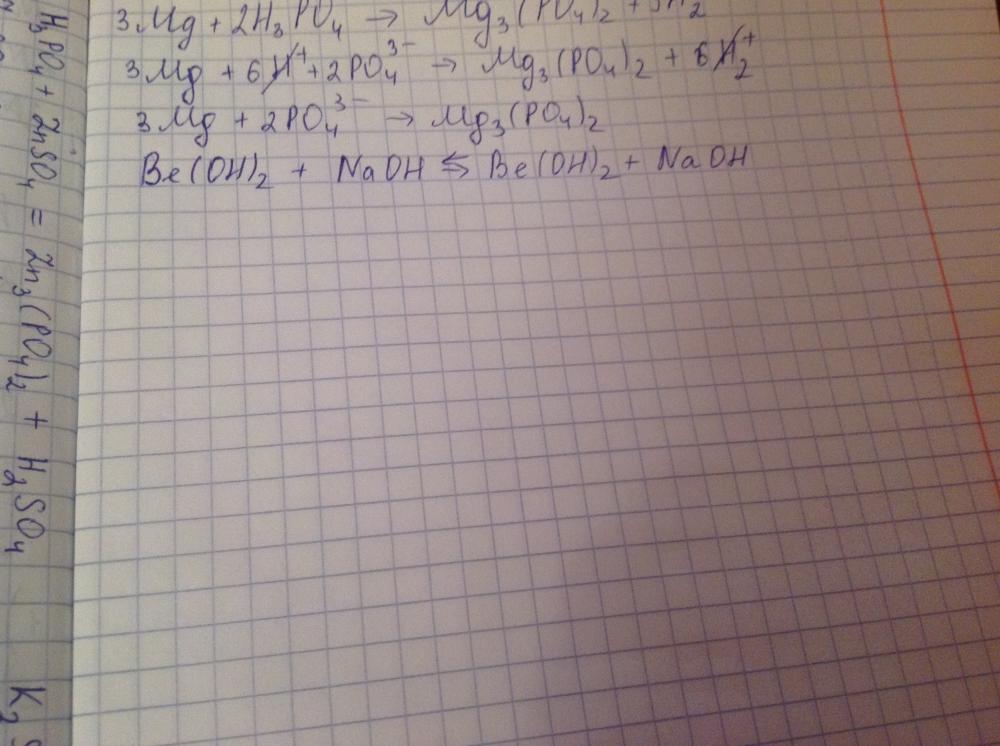 3Mg + 2H₃PO₄ → Mg₃(PO₄)₂ + 3H₂
3Mg + 6H⁺ + 2PO₄³⁻ → Mg₃(PO₄)₂ + 6H₂⁺
3Mg + 2PO₄³⁻ → Mg₃(PO₄)₂
Be(OH)₂ + NaOH ⇆ Be(OH)₂ + NaOH
H₃PO₄ + ZnSO₄ = Zn₃(PO₄)₂ + H₂SO₄
K₂